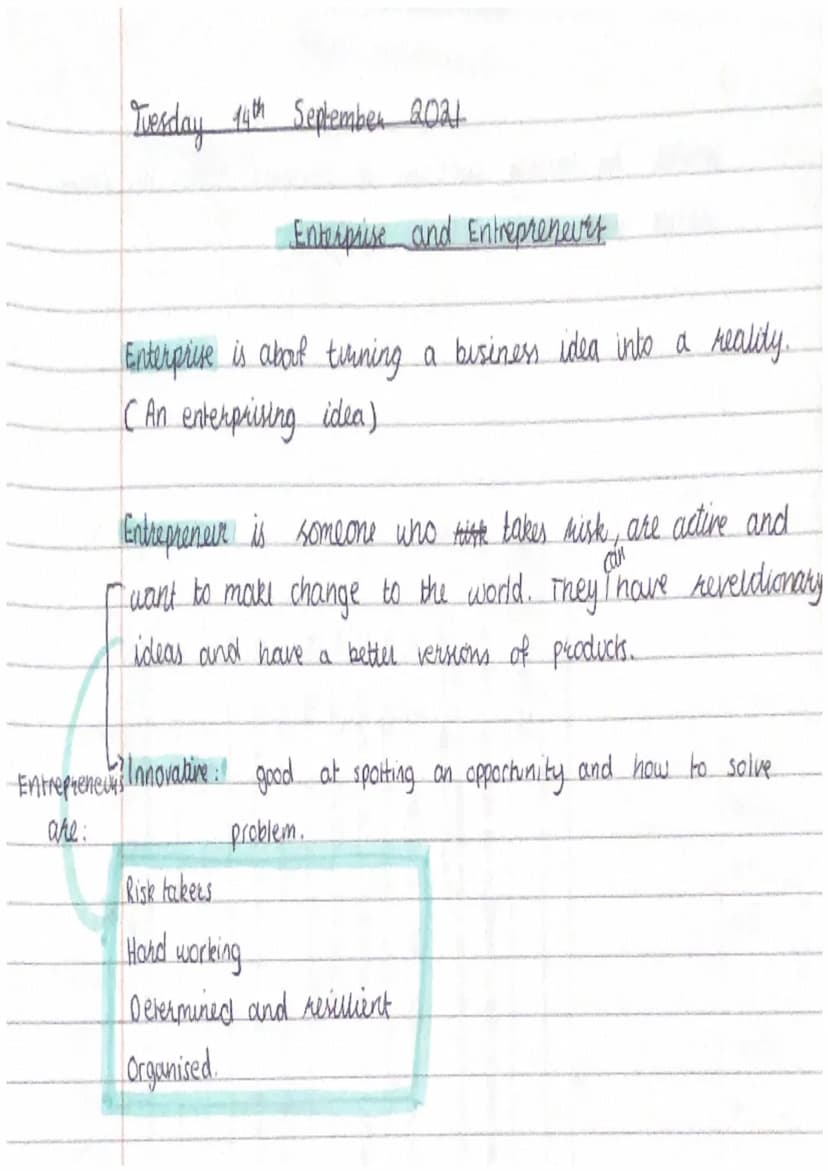 Tuesday 14th September 2021
Enterprise and Entrepreneurs
Enterprise is about turning a business idea into a reality.
(An enterprising idea)
Entrepreneur is someone who takes risk, are active and
want to make change to the world. They can have reveloionary
ideas and have a better versions of products.
Innovative: good at spotting an opportunity and how to solve
problem.
Entrepreneurs
are:
Risk takers
Hard working
Determined and resillient
Organised.